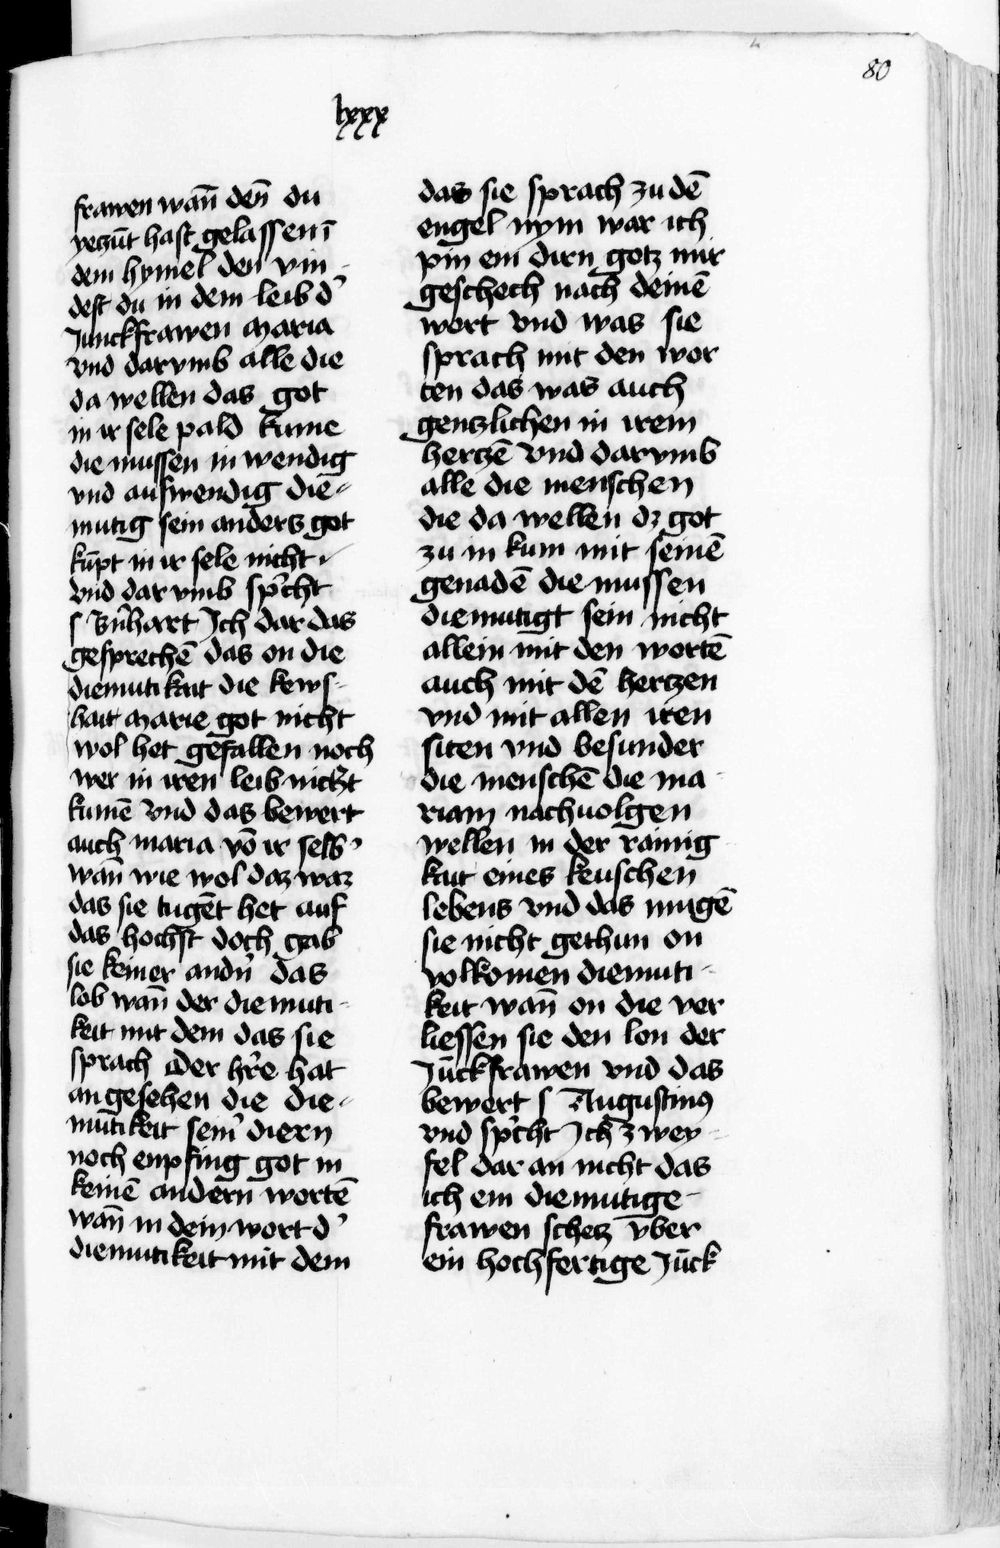 80
lxxx
frawen wan̄ den̄ du
yeczūt hast gelassen ī
dem hymel den vin-
dest du in dem leib d'
Junckfrawen maria
vnd darvmb alle die
da wellen das got
in ir sele pald kume
die mussen in wendig
vnd auswendig die-
mutig sein anders got
kūpt in ir sele nicht
vnd dar vmb sp'cht
s Bn̄hart Jch dar das
gesprechē das on die
diemutikait die kews-
hait marie got nicht
wol het gefallen noch
wer in iren leib nickt
kumē vnd das bewert
auch maria vō ir selb'
wan̄ wie wol daz waz
das sie tugēt het auf
das hochst doch gab
sie keiner andn̄ das
lob wan̄ der diemuti-
keit mit dem das sie
sprach der hr̄e hat
angesehen die die-
mūtikeit sein' diern
noch enpfing got in
keinē andern wortē
wan̄ in dem wort d'
diemutikeit mit dem
das sie sprach zu dē
engel nym war ich
pin ein dirn gotz mir
geschech nach deinē
wort vnd was sie
sprach mit den wor
ten das was auch
gentzlichen in irem
hertzē vnd darvmb
alle die menschen
die da wellen dz got
zu in kum mit seinē
genadē die mussen
diemutigt sein nicht
allein mit den wortē
auch mit dē hertzen
vnd mit allen iren
siten vnd besunder
die menschē die ma-
riam nachuolgen
wellen in der rainig
kait eines keuschen
lebens vnd das mugē
sie nicht gethun on
volkomen diemuti-
keit wan̄ on die ver
liessen sie den lon der
Jūckfrawen vnd das
bewert s Augustinus
vnd sp'cht Jch zwey-
fel dar an nicht das
ich ein diemutige-
frawen schetz v̄ber
ein hochfertige Jūck